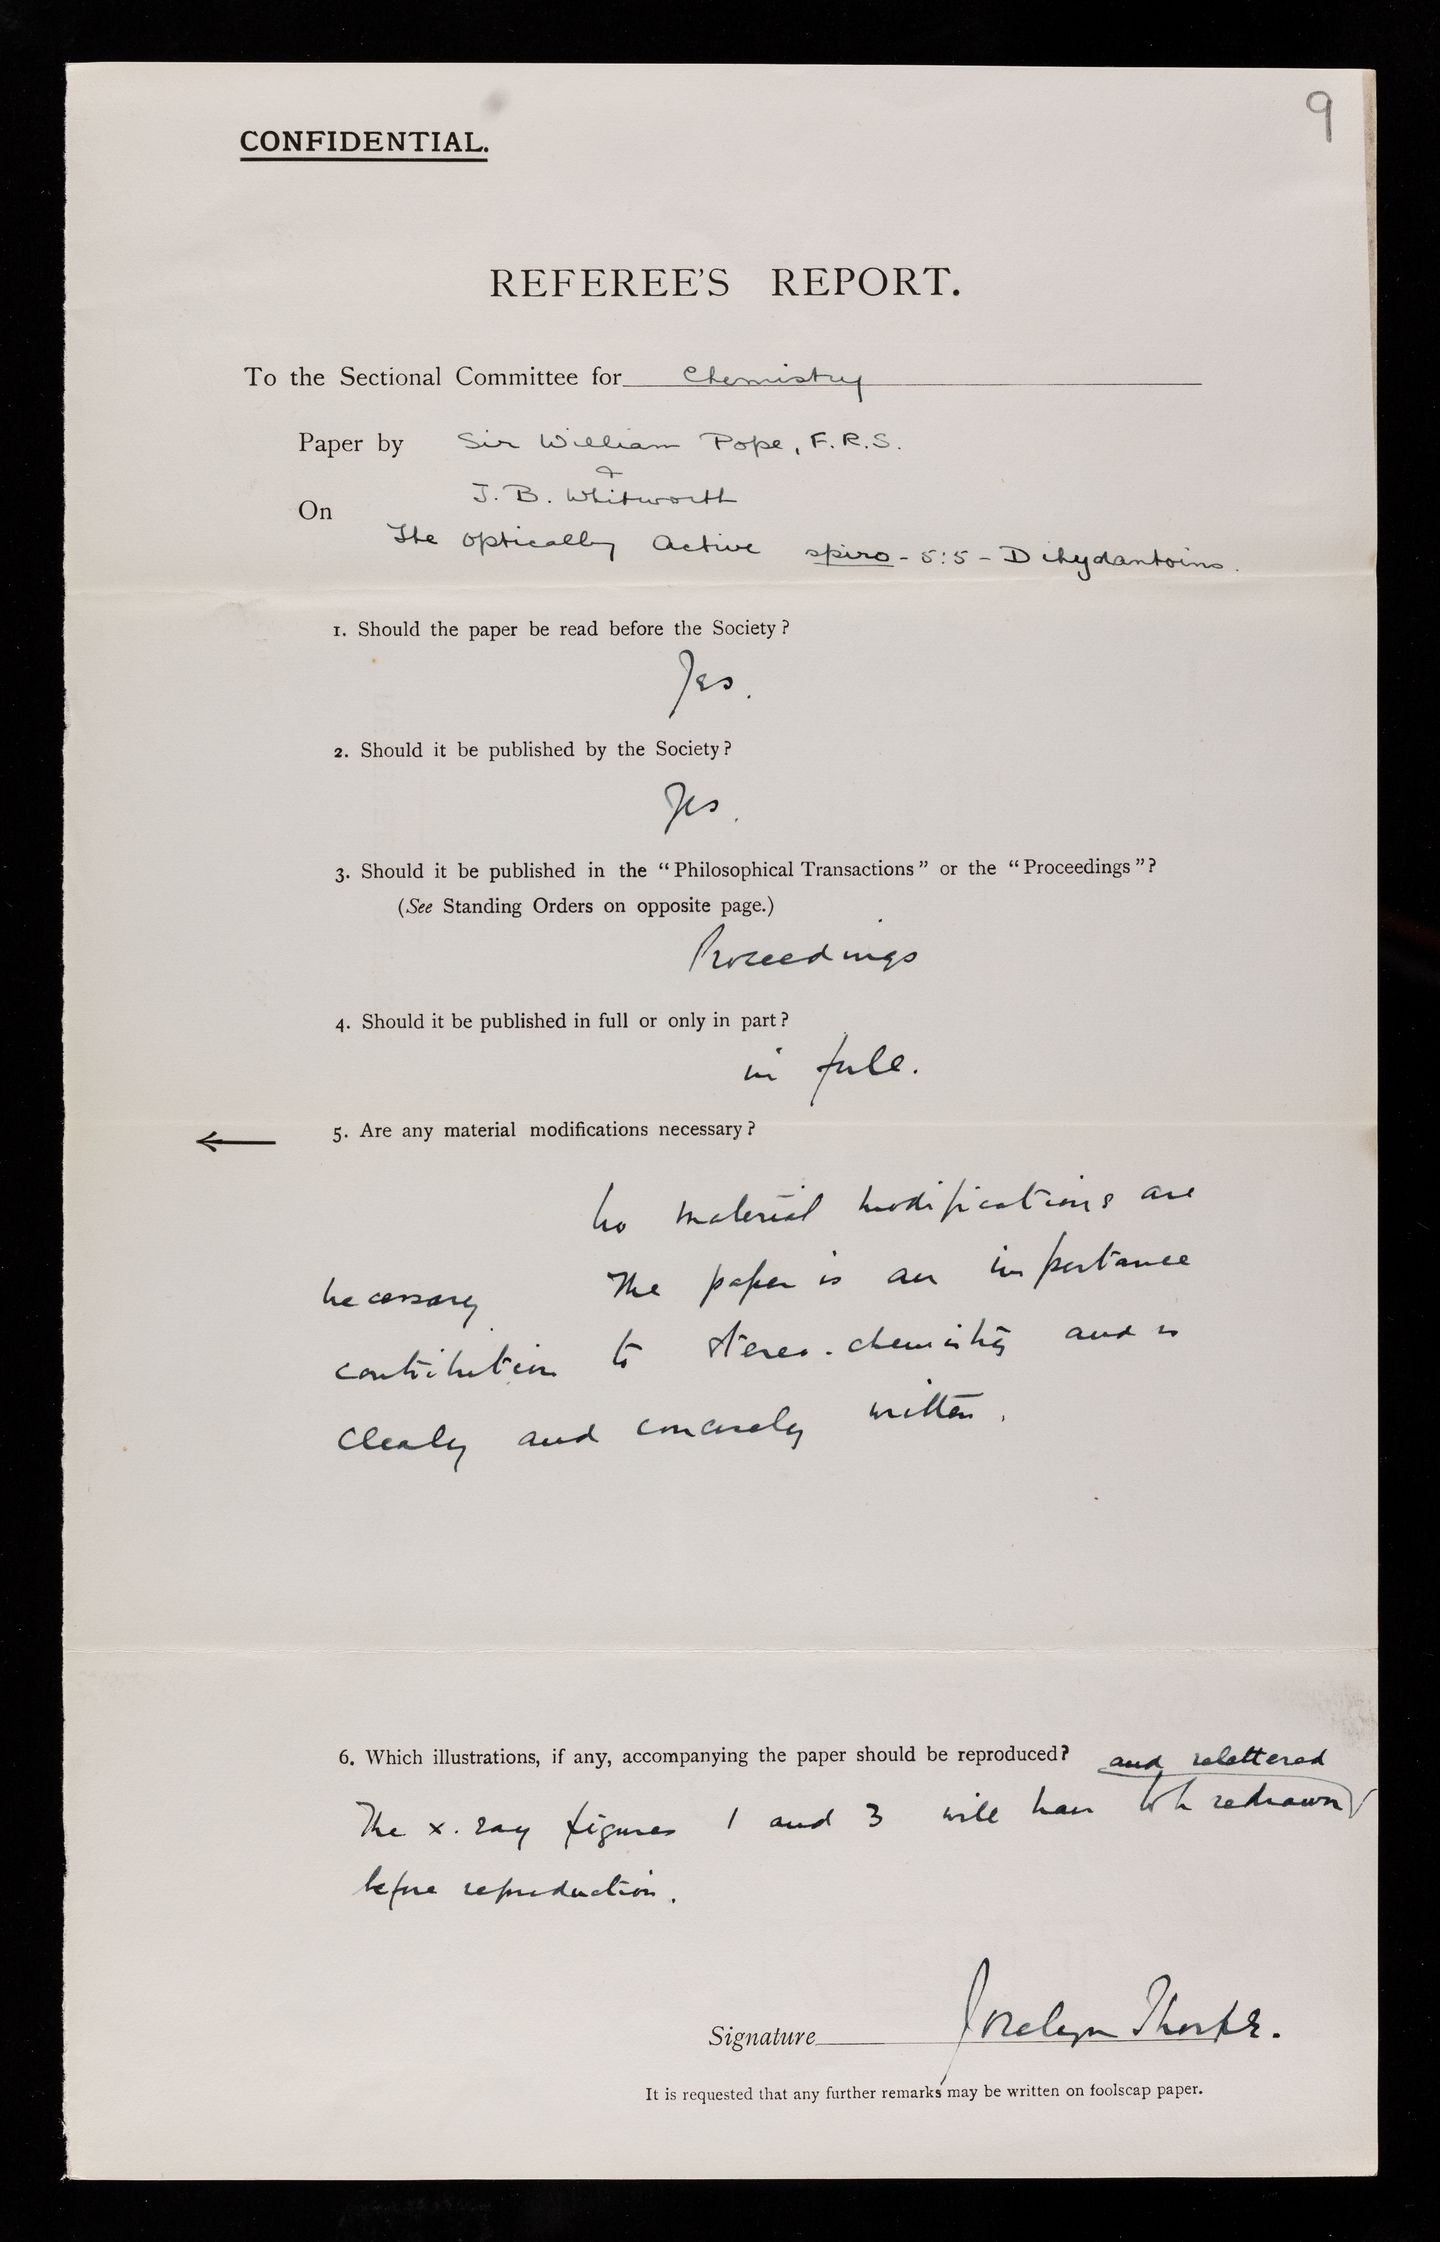 9
CONFIDENTIAL.
REFEREE'S REPORT.
To the Sectional Committee for Chemistry
Paper by Sir William Pope, F.R.S.
&
J. B. Whitworth
On
The optically Active spiro-5:5-Dihydantoins.
1. Should the paper be read before the Society?
Yes.
2. Should it be published by the Society?
Yes.
3. Should it be published in the "Philosophical Transactions" or the "Proceedings"?
(See Standing Orders on opposite page.)
Proceedings
4. Should it be published in full or only in part?
in full.
← 5. Are any material modifications necessary?
No material modifications are
necessary The paper is an importance
contribution to stereo-chemistry and is
clearly and concisely written.
6. Which illustrations, if any, accompanying the paper should be reproduced?
and relettered
The x-ray figures 1 and 3 will have to be redrawn
before reproduction.
Signature Jocelyn Thorpe.
It is requested that any further remarks may be written on foolscap paper.